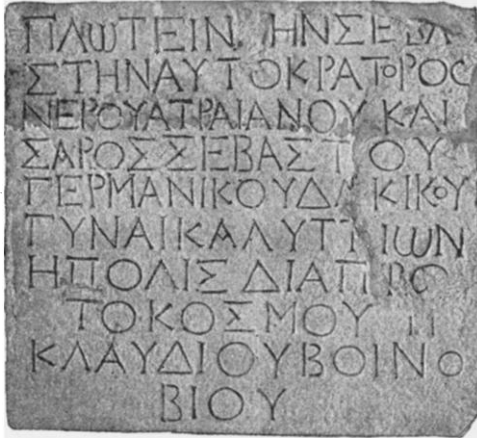 ΠΛωΤΕΙΝΗΝΣΕΒΑ
ΣΤΗΝΑΥΤΟΚΡΑΤΟΡΟΣ
ΝΕΡΟΥΑΤΡΑΙΑΝΟΥΚΑΙ
ΣΑΡΟΣΣΕΒΑΣΤΟΥ
ΓΕΡΜΑΝΙΚΟΥΔΑΚΙΚΟΥ
ΓΥΝΑΙΚΑΛΥΤΤΙωΝ
ΗΠΟΛΙΣΔΙΑΠΡω
ΤΟΚΟΣΜΟΥΤΙ
ΚΛΑΥΔΙΟΥΒΟΙΝΟ
ΒΙΟΥ